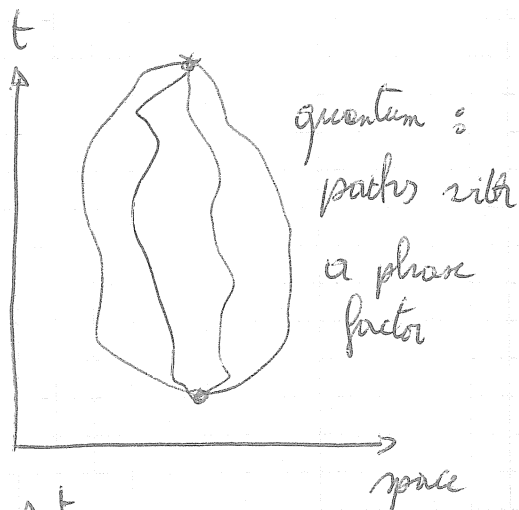 t
quantum :
paths with
a phase
factor
space
t